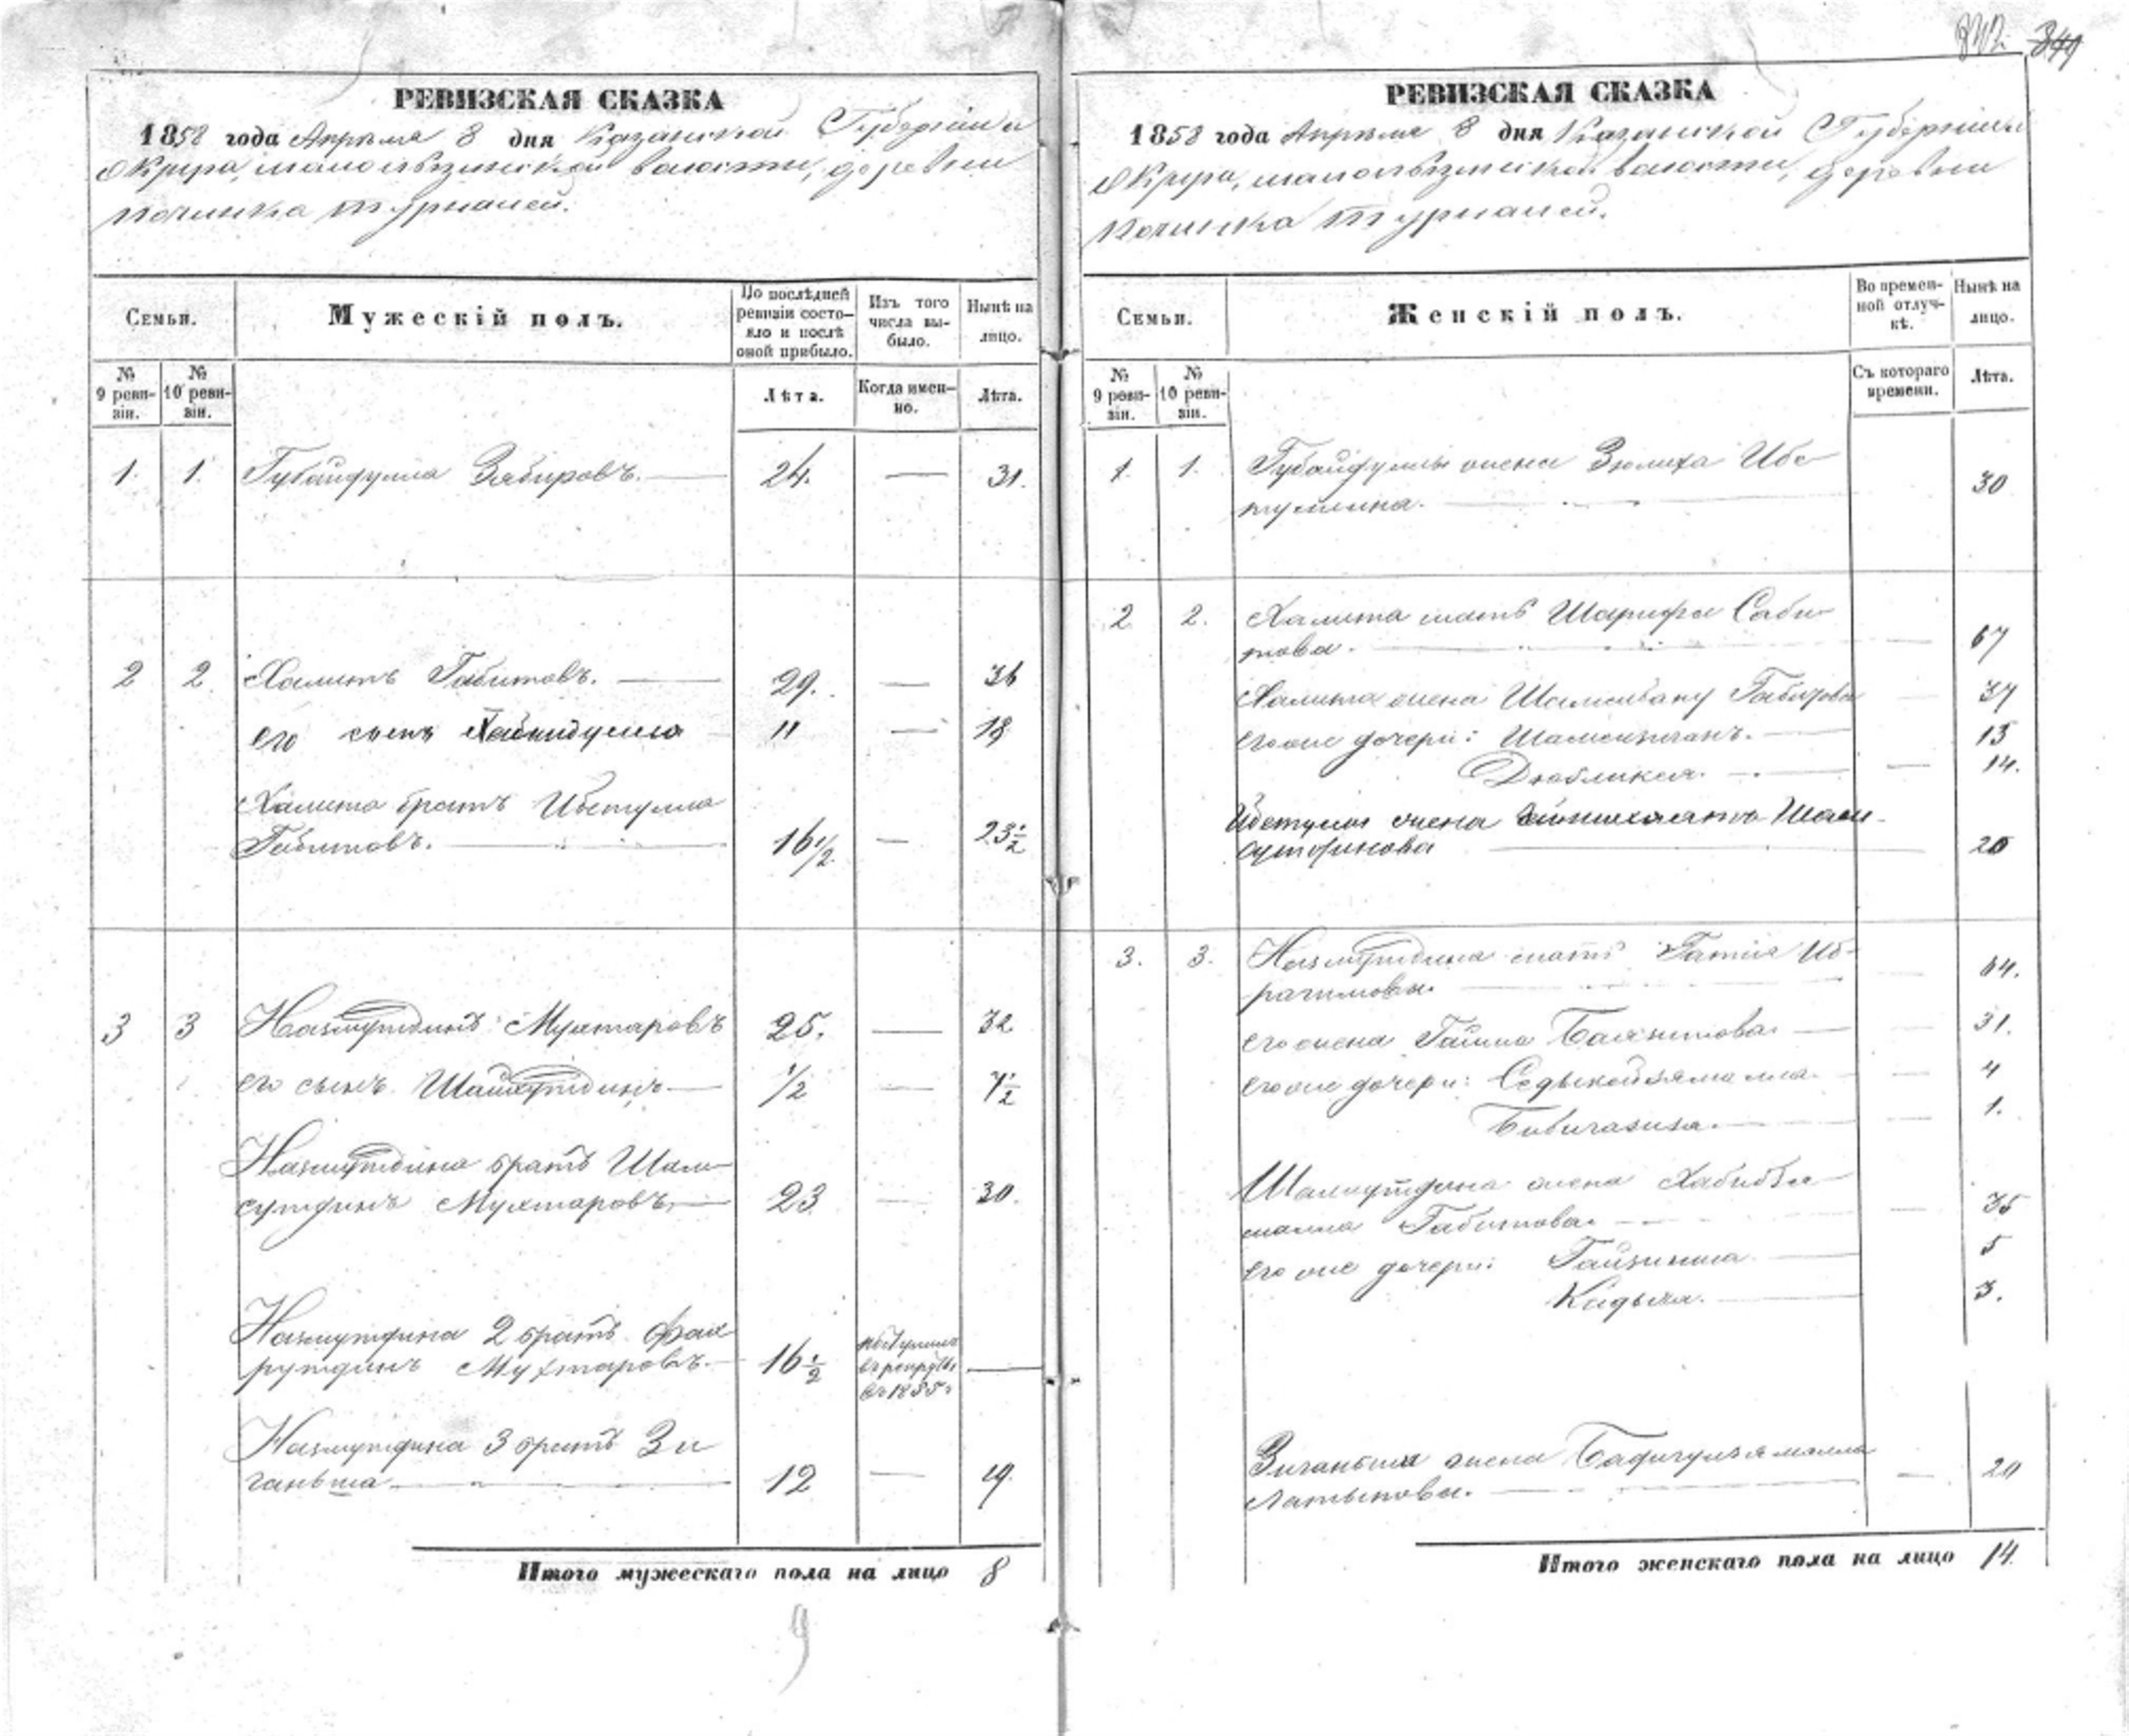 842. 341
РЕВИЗСКАЯ СКАЗКА
1858 года Апрѣля 8 дня Казанской Губерніи и
Округа, волости, деревни
починка Турнашей.
Семьи.
Мужескій полъ.
По послѣдней ревизіи состояло и послѣ оной прибыло.
Изъ того числа выбыло.
Нынѣ на лицо.
№ 9 ревизіи.
№ 10 ревизіи.
Лѣта.
Когда именно.
Лѣта.
1. 1. Губайдулла Забировъ. 24. — 31.
2 2 Халитъ Габитовъ. 29. — 36
его сынъ Хабибулла 11 — 18
Халита братъ Ибетулла
Габитовъ. 16 1/2 — 23 1/2
3 3 Назмутдинъ Мухтаровъ 25. — 32
его сынъ Шайхутдинъ 1/2 — 7 1/2
Назмутдина братъ Шам-
сутдинъ Мухтаровъ 23 — 30.
Назмутдина 2 братъ Фах
рутдинъ Мухтаровъ. 16 1/2 поступилъ въ рекруты въ 1855 г —
Назмутдина 3 братъ Зи
ганьша 12 — 19.
Итого мужескаго пола на лицо 8
9
РЕВИЗСКАЯ СКАЗКА
1858 года Апрѣля 8 дня Казанской Губерніи и
Округа, волости, деревни
починка Турнашей.
Семьи.
Женскій полъ.
Во временной отлучкѣ.
Нынѣ на лицо.
№ 9 ревизіи.
№ 10 ревизіи.
Съ котораго времени.
Лѣта.
1. 1. Губайдуллы жена Зюлиха Ибе-
туллина. 30
2 2. Халита мать Шарифа Саби-
това. — 67
Халита жена Шамсибану Габитова — 37
его же дочери: Шамсижиганъ. 15
14.
Ибетуллы жена Шам-
сутдинова 20
3. 3. Назмутдина мать Гатія Иб-
рагимова. — 64.
его жена Галима — 31.
его же дочери: — 4
Бибигазиза. — 1.
Шамсутдина жена Хабибзя-
мала Габитова. — 35
его же дочери: 5
Кадыча. 3.
Зиганьши жена
Латыпова. — 20
Итого женскаго пола на лицо 14.